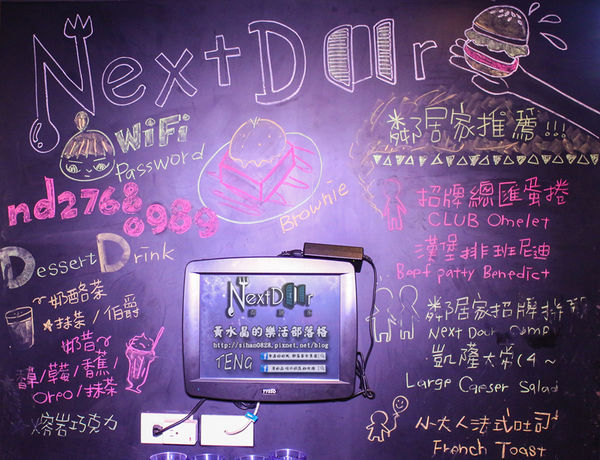 Next Door
WiFi
Password
nd2768
0989
Brownie
Dessert Drink
奶酪茶
抹茶/伯爵
奶昔
草/莓/香蕉/
Oreo/抹茶
熔岩巧克力
鄰居家推薦!!!
招牌總匯蛋捲
CLUB Omelet
漢堡排班尼迪
Beef patty Benedict
鄰居家招牌拼
Next Door
凱薩大菜(4~
Large Caeser Salad
小大人法式吐司
French Toast
Next Door
黃水晶的樂活部落格
http://sihan0828.pixnet.net/blog
TENG